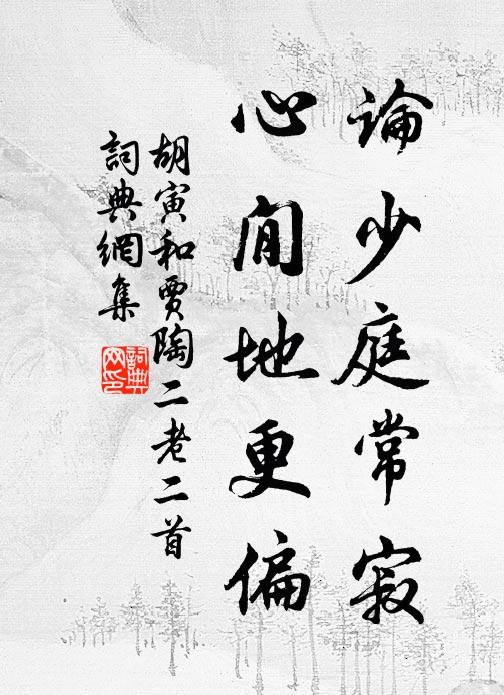 論少庭常寂
心閒地更偏
胡寅和賈陶二老二首
詞典網集
詞典网印